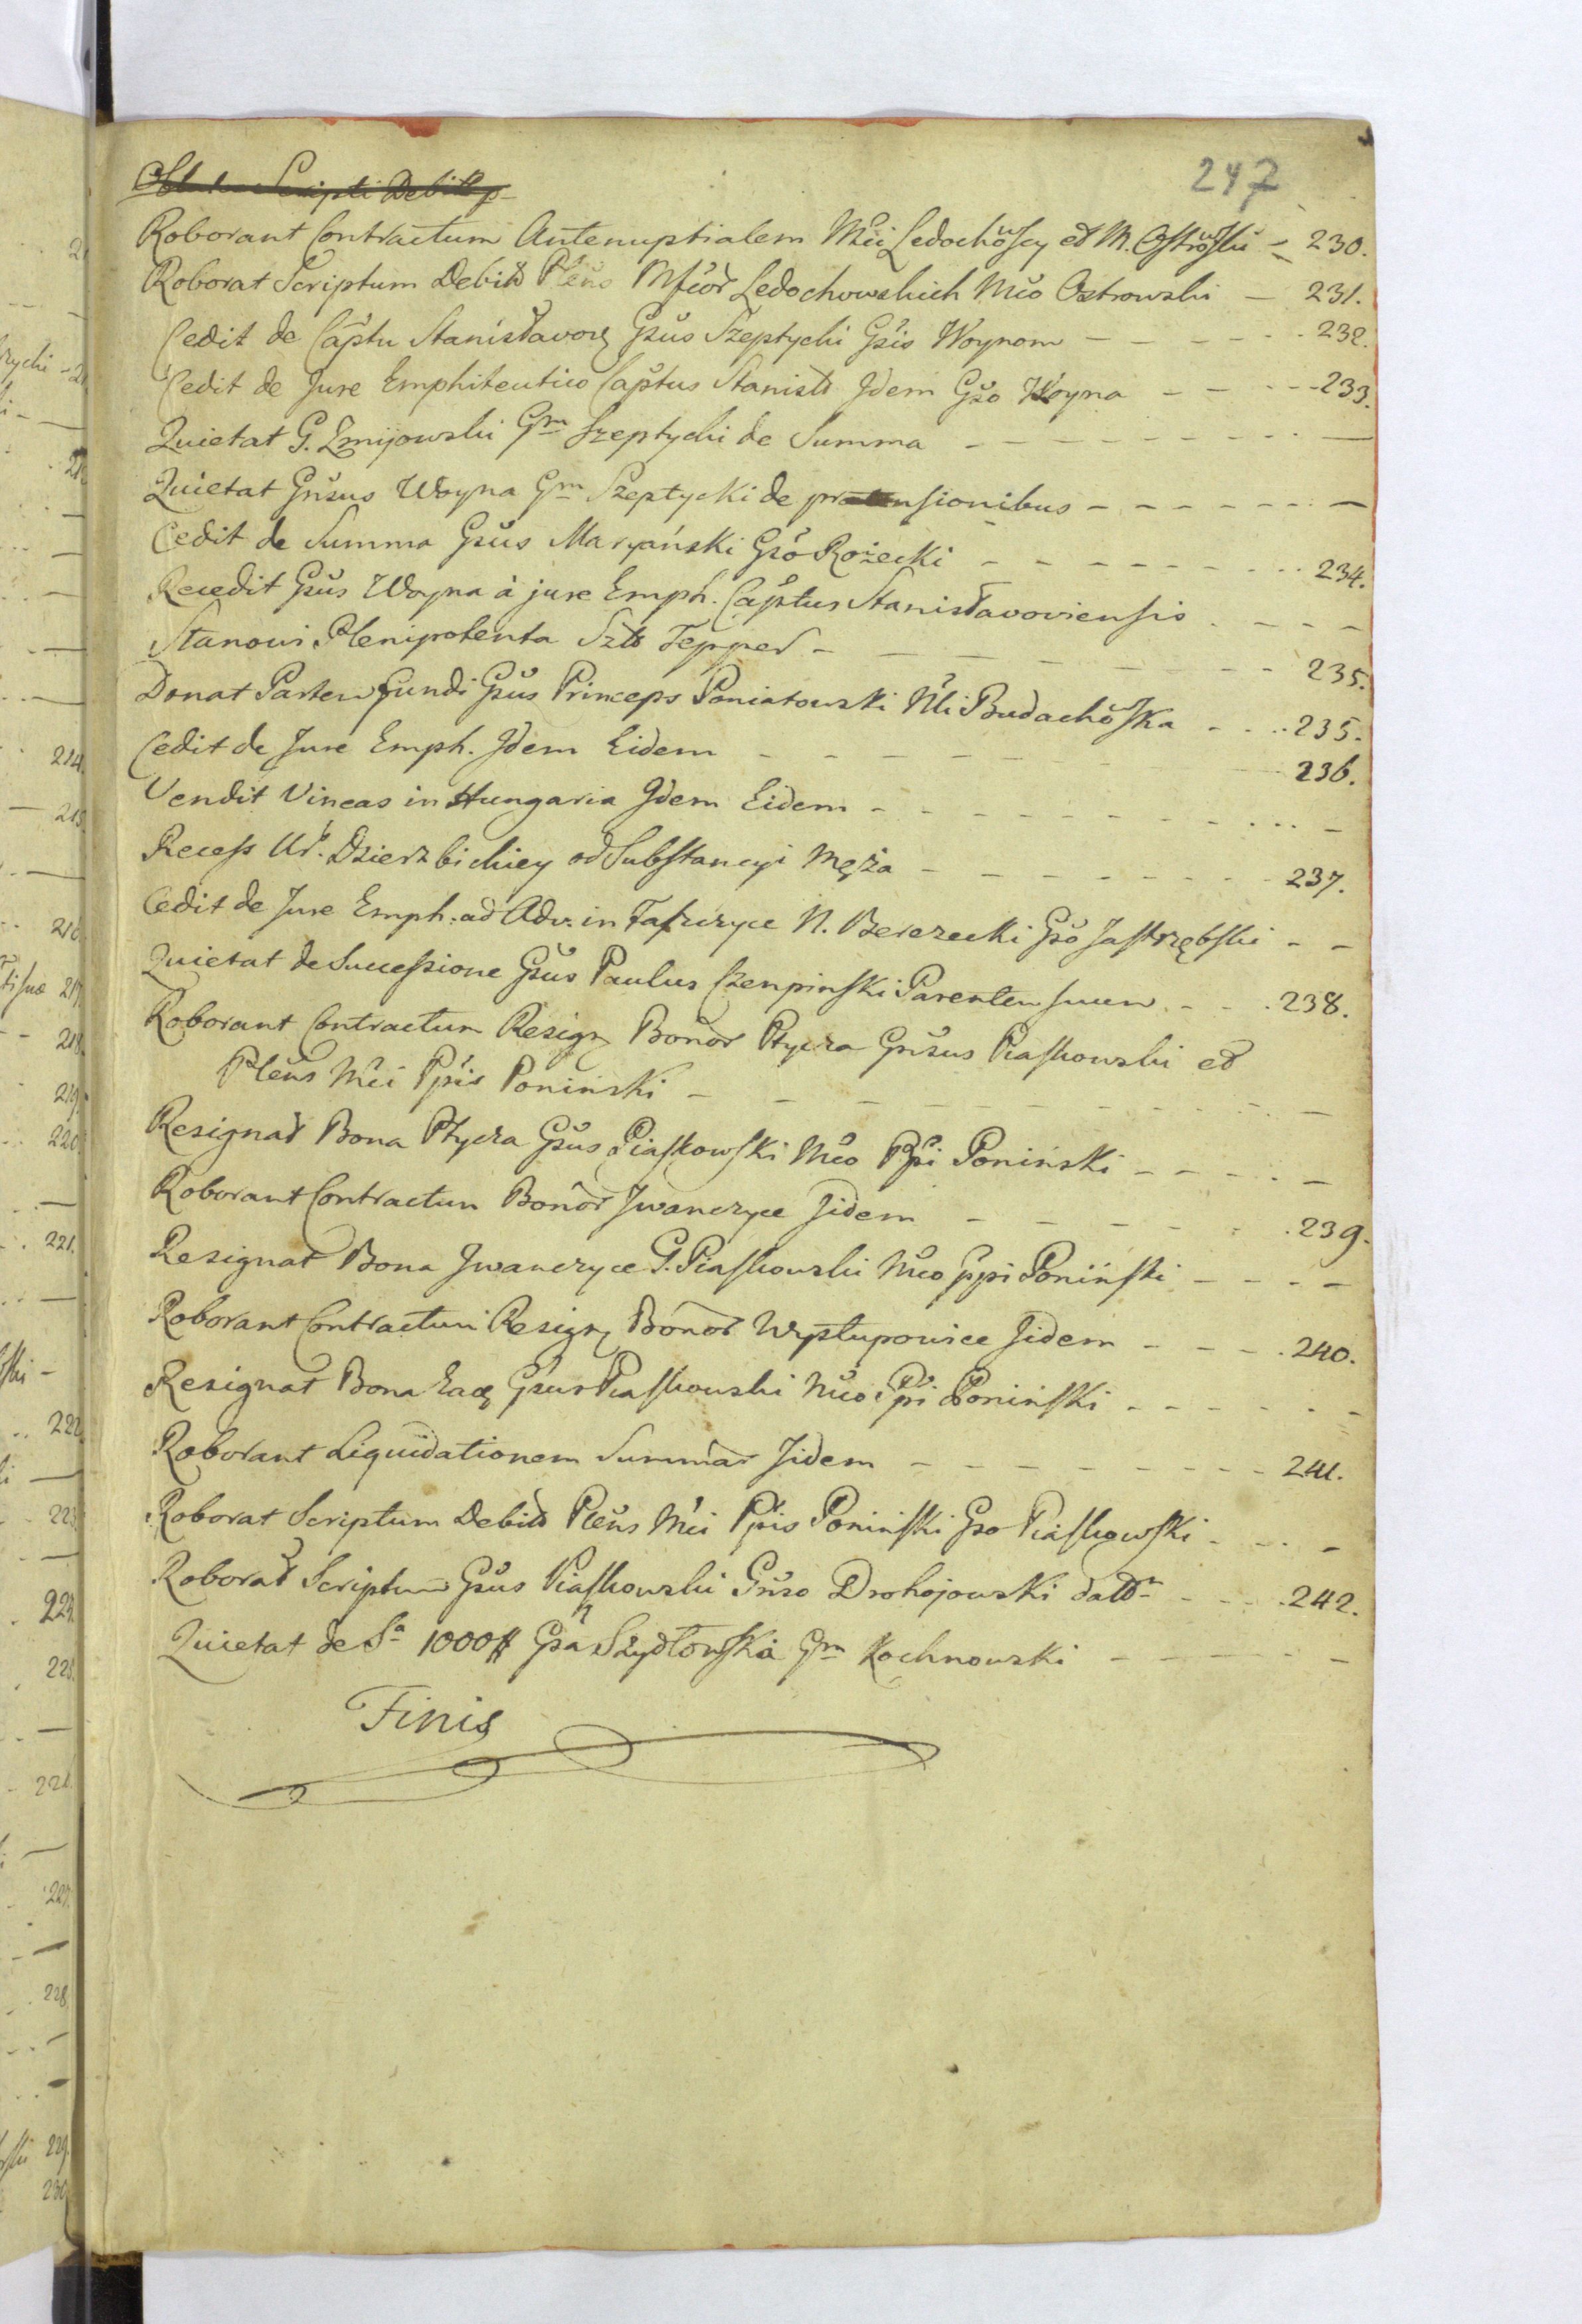 247
Scripti Debiti
Roborant Contractum Antenuptialem Mci Ledochowscy et M. Ostrowski - 230.
Roborat Scriptum Debiti Plens Mfcor Ledochowskich Mco Ostrowski - 231.
Cedit de Captu Stanisławow Gsus Szeptycki Gsis Woynom - - - - - 232.
Cedit de Jure Emphiteutico Captus Stanisł Idem Gso Woyna - - - - 233.
Quietat G. Zmijowski Gm Szeptycki de Summa - - - - - - - - -
Quietat Gnsus Woyna Gm Szeptycki de pretensionibus - - - - - - -
Cedit de Summa Gsus Maryański Gso Rożecki - - - - - - - - 234.
Recedit Gsus Woyna à jure Emph. Captus Stanisławoviensis - - - -
Stanowi Plenipotenta Szł Tepper - - - - - - - - 235.
Donat Partem Fundi Gsus Princeps Poniatowski Mli Budachowska - - - 235.
Cedit de Jure Emph. Idem Eidem - - - - - - - 236.
Vendit Vineas in Hungaria Idem Eidem - - - - - - - - - -
Recess Ur. Dzierzbickiey od Substancyi Męża - - - - - - - 237.
Cedit de Jure Emph. ad Adv. in N. Berezecki Gso Jastrzębski - -
Quietat de Successione Gsus Paulus Czenpinski Parentem suum - - - 238.
Roborant Contractum Resign Bonor Ptycza Gnsus Piaskowski et
Plens Mci Ppis Poniński - - - - - - - - -
Resignat Bona Ptycza Gsus Piaskowski Mco Ppi Poniński - - - - -
Roborant Contractum Bonor Iwanczyce Iidem - - - - - 239.
Resignat Bona Iwanczyce G. Piaskowski Mco ppi Poniński - - - -
Roborant Contractum Resign Bonor Wystupowice Iidem - - - - 240.
Resignat Bona Eadē Gsus Piaskowski Mco Ppi Poniński - - - - - -
Roborant Liquidationem Summar Iidem - - - - - - - - - 241.
Roborat Scriptum Debiti Plens Mci Ppis Poniński Gso Piaskowski - - - -
Roborat Scriptum Gsus Piaskowski Gnso Drohojowski - - - 242.
Quietat de Sa 1000 Gsa Szydłowska Gm Kochnowski - - - - - -
Finis